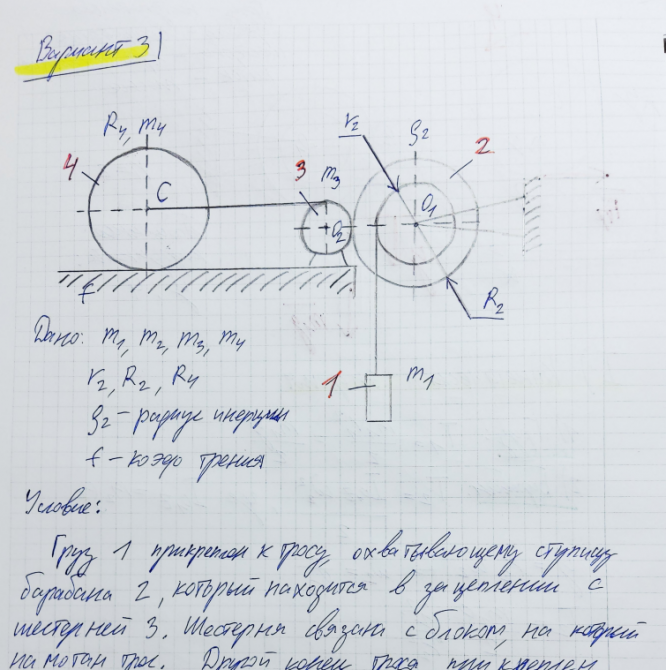 Вариант 31
R4, m4
r2
ρ2
4
3
m3
2
C
O2
O1
R2
f
Дано: m1, m2, m3, m4
1
m1
r2, R2, R4
ρ2 – радиус инерции
f – коэфф трения
Условие:
Груз 1 прикреплен к тросу, охватывающему ступицу
барабана 2, который находится в зацеплении с
шестерней 3. Шестерня связана с блоком, на который
намотан трос. Другой конец троса прикреплен